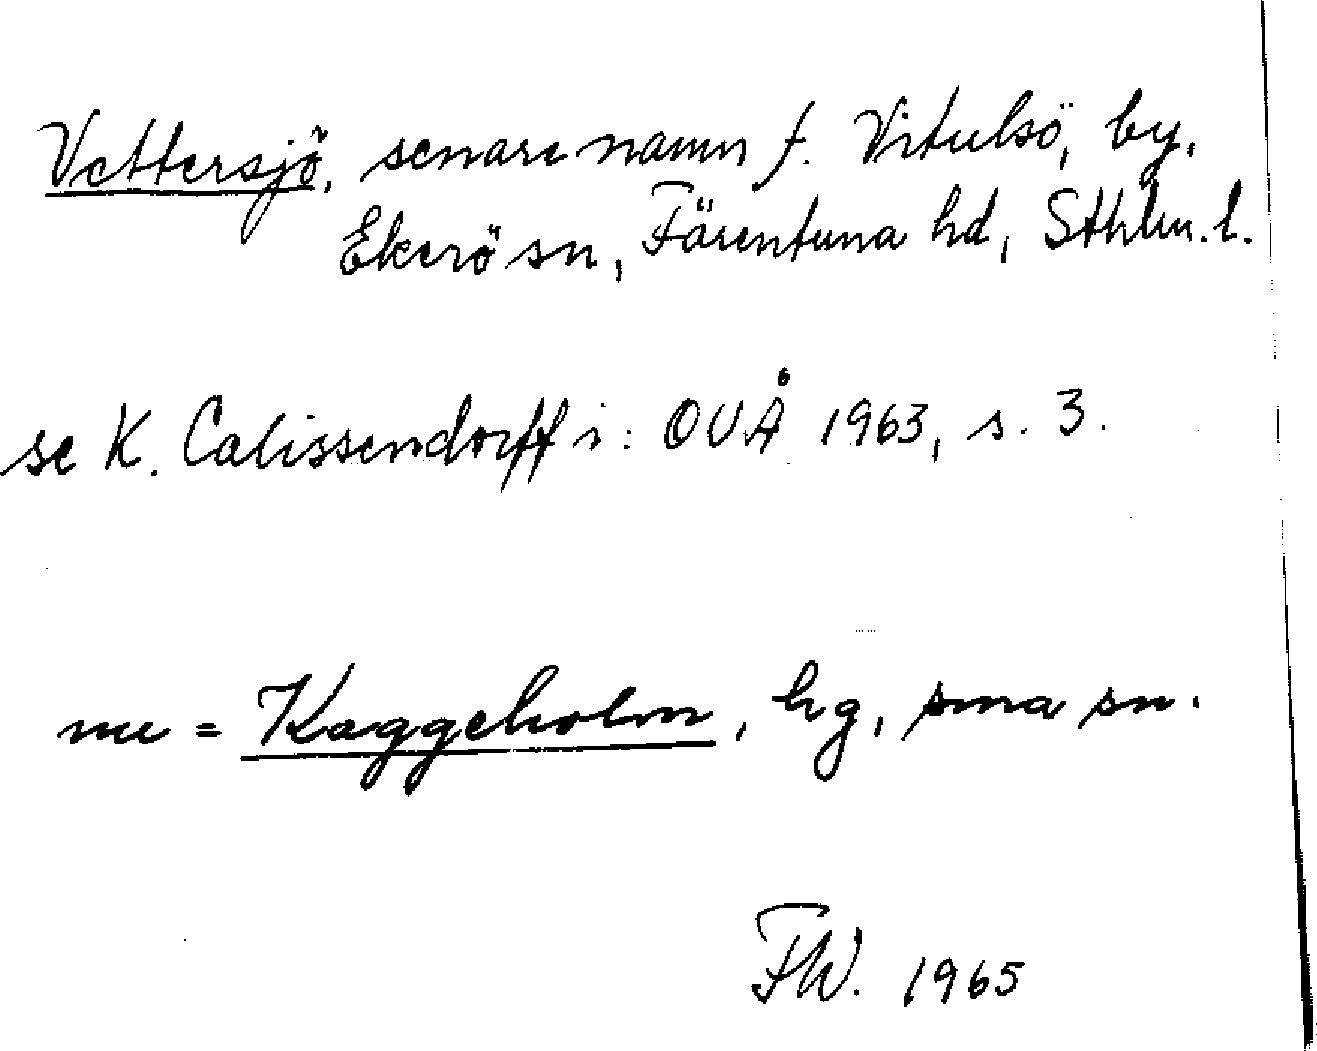 Vettersjö, senare namn f. Vitulsö, by,
Ekerö sn, Färentuna hd, Sthlm. l.
se K. Calissendorff i: OVÅ 1963, s. 3.
nu = Kaggeholm, hg, sma sn.
FW. 1965